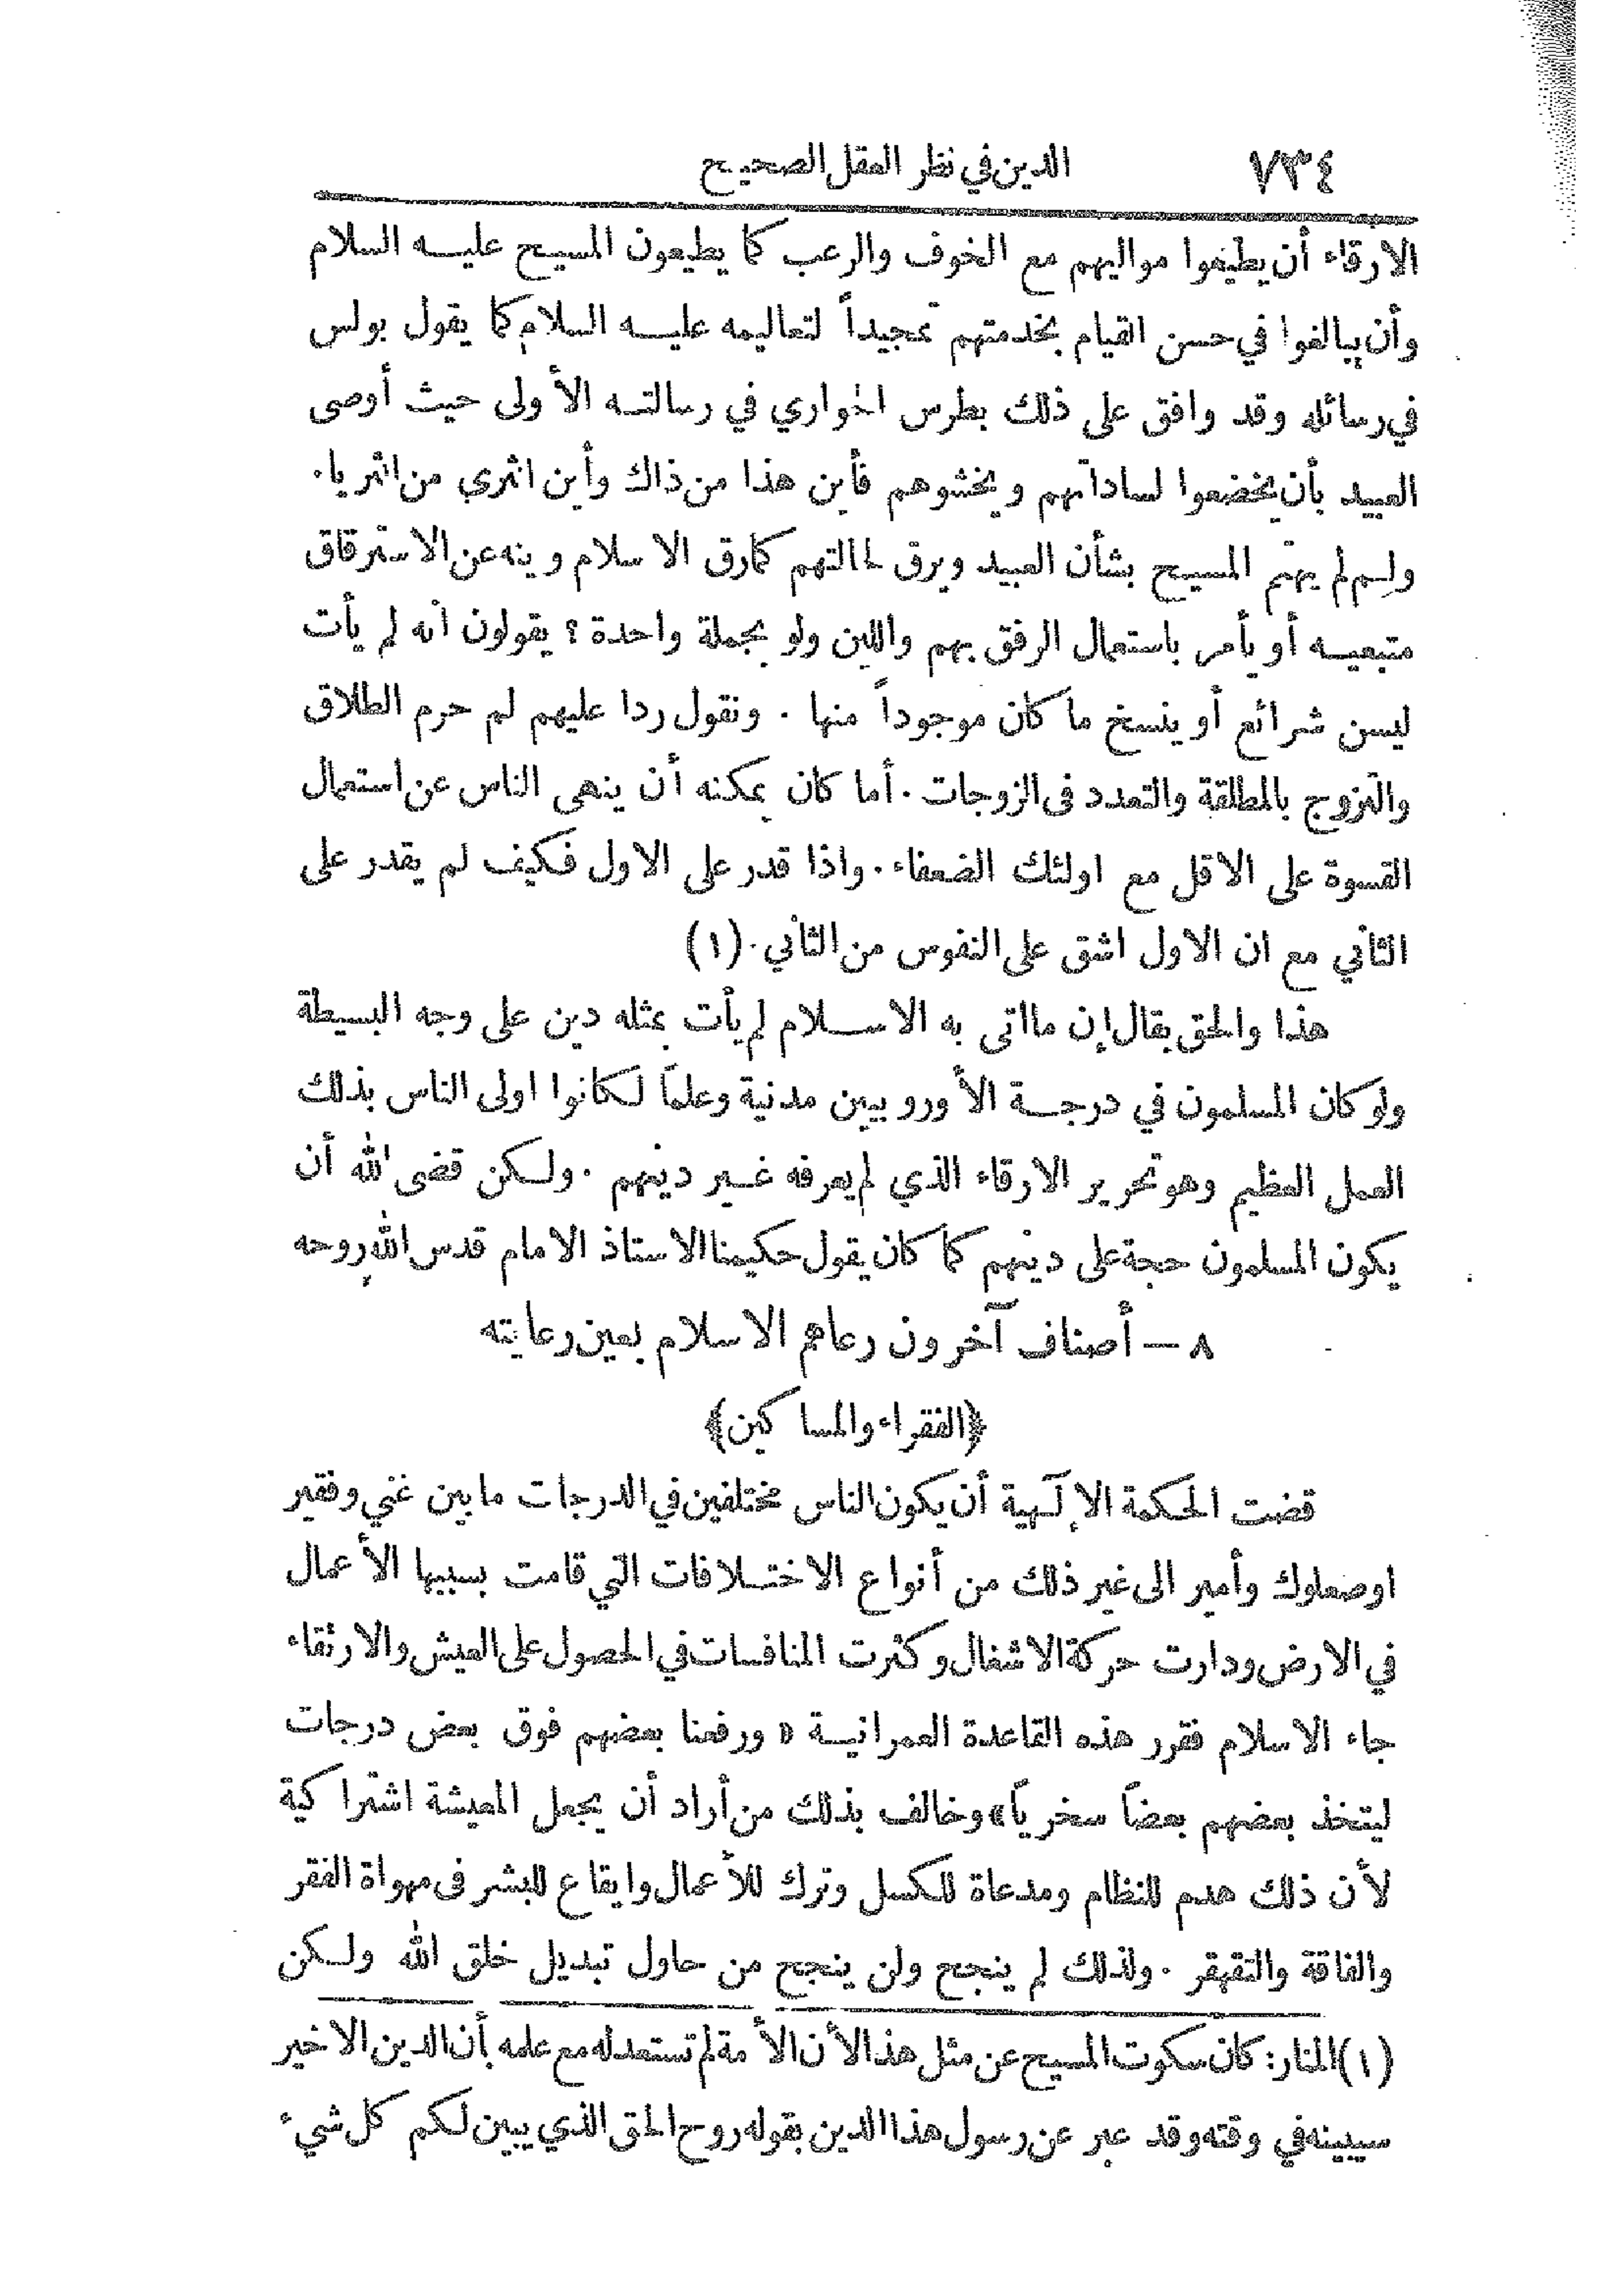 ٧٣٤ الدين في نظر العقل الصحيح
الارقاء أن يطيعوا مواليهم مع الخوف والرعب كما يطيعون المسيح عليه السلام
وأن يبالغوا في حسن القيام بخدمتهم تمجيداً لتعاليمه عليه السلام كما يقول بولس
في رسائله وقد وافق على ذلك بطرس الحواري في رسالته الأولى حيث أوصى
العبيد بأن يخضعوا لساداتهم ويخشوهم فأين هذا من ذاك وأين الثرى من الثريا.
ولِـم لم يهتم المسيح بشأن العبيد ويرق لحالتهم كما رق الاسلام وينه عن الاسترقاق
متبعيه أو يأمر باستعمال الرفق بهم واللين ولو بجملة واحدة؟ يقولون انه لم يأت
ليسن شرائع أو ينسخ ما كان موجوداً منها . ونقول ردا عليهم لم حرم الطلاق
والتزوج بالمطلقة والتعدد فى الزوجات . أما كان يمكنه أن ينهى الناس عن استعمال
القسوة على الاقل مع اولئك الضعفاء . واذا قدر على الاول فكيف لم يقدر على
الثاني مع ان الاول اشق على النفوس من الثاني . (١)
هذا والحق يقال إن ما اتى به الاسلام لم يأت بمثله دين على وجه البسيطة
ولو كان المسلمون في درجة الأوروبيين مدنية وعلماً لكانوا اولى الناس بذلك
العمل العظيم وهو تحرير الارقاء الذي لم يعرفه غير دينهم . ولكن قضى الله أن
يكون المسلمون حجة على دينهم كما كان يقول حكيمنا الاستاذ الامام قدس الله روحه
٨ — أصناف آخرون رعاهم الاسلام بعين رعايته
﴿الفقراء والمساكين﴾
قضت الحكمة الإلٓهية أن يكون الناس مختلفين في الدرجات ما بين غني وفقير
اوصعلوك وأمير الى غير ذلك من أنواع الاختلافات التي قامت بسببها الأعمال
في الارض ودارت حركة الاشغال وكثرت المنافسات في الحصول على العيش والارتقاء
جاء الاسلام فقرر هذه القاعدة العمرانية « ورفعنا بعضهم فوق بعض درجات
ليتخذ بعضهم بعضاً سخرياً » وخالف بذلك من أراد أن يجعل المعيشة اشتراكية
لأن ذلك هدم للنظام ومدعاة للكسل وترك للأعمال وايقاع للبشر فى مهواة الفقر
والفاقة والتقهقر . ولذلك لم ينجح ولن ينجح من حاول تبديل خلق الله ولكن
(١) المنار: كان سكوت المسيح عن مثل هذا لأن الأمة لم تستعد له مع علمه بأن الدين الاخير
سيبينه في وقته وقد عبر عن رسول هذا الدين بقوله روح الحق الذي يبين لكم كل شيء